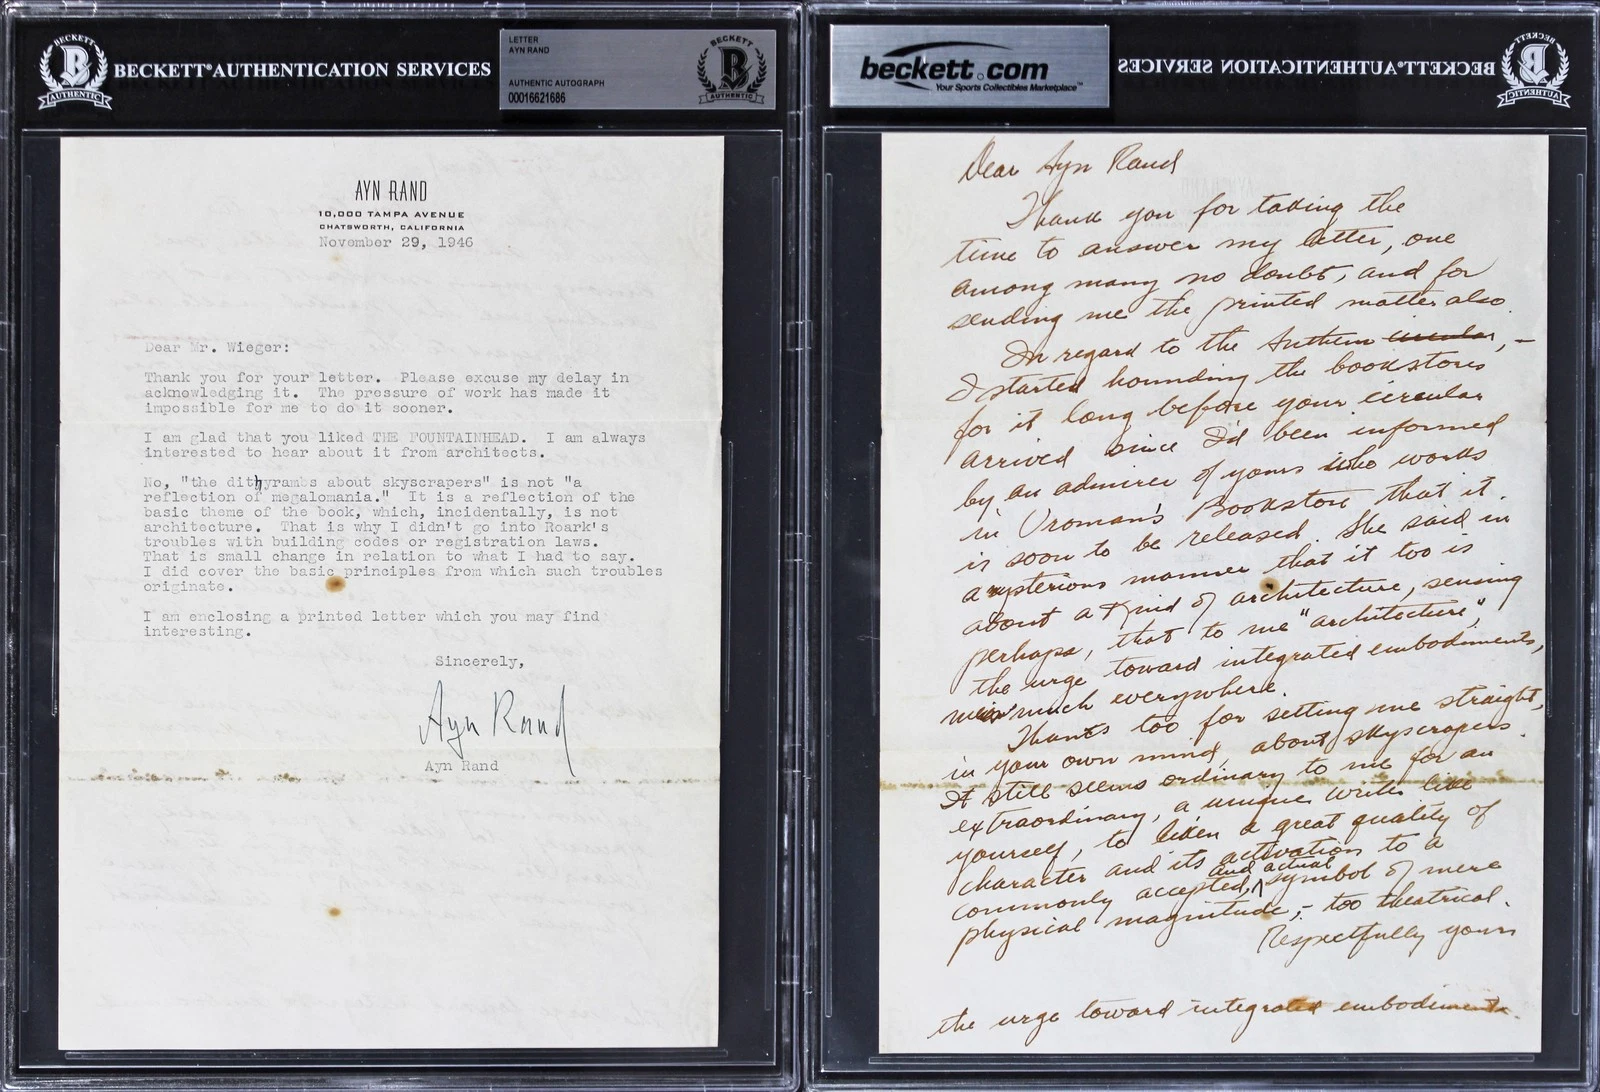 BECKETT
B
AUTHENTIC
BECKETT® AUTHENTICATION SERVICES
LETTER
AYN RAND
AUTHENTIC AUTOGRAPH
00016621686
BECKETT
B
AUTHENTIC
AYN RAND
10,000 TAMPA AVENUE
CHATSWORTH, CALIFORNIA
November 29, 1946
Dear Mr. Wieger:
Thank you for your letter. Please excuse my delay in
acknowledging it. The pressure of work has made it
impossible for me to do it sooner.
I am glad that you liked THE FOUNTAINHEAD. I am always
interested to hear about it from architects.
No, "the dithyrambs about skyscrapers" is not "a
reflection of megalomania." It is a reflection of the
basic theme of the book, which, incidentally, is not
architecture. That is why I didn't go into Roark's
troubles with building codes or registration laws.
That is small change in relation to what I had to say.
I did cover the basic principles from which such troubles
originate.
I am enclosing a printed letter which you may find
interesting.
Sincerely,
Ayn Rand
Ayn Rand
beckett.com
Your Sports Collectibles Marketplace™
BECKETT® AUTHENTICATION SERVICES
BECKETT
B
AUTHENTIC
Dear Ayn Rand
Thank you for taking the
time to answer my letter, one
among many no doubt, and for
sending me the printed matter also.
In regard to the Anthem circular, –
I started hounding the bookstores
for it long before your circular
arrived since I'd been informed
by an admirer of yours who works
in Vroman's Bookstore that it
is soon to be released. She said in
a mysterious manner that it too is
about a kind of architecture, sensing
perhaps, that to me "architecture",
the urge toward integrated embodiments,
is much everywhere.
Thanks too for setting me straight,
in your own mind about skyscrapers.
It still seems ordinary to me for an
extraordinary, a unique writer like
yourself, to liken a great quality of
character and its activation to a
commonly accepted, and actual symbol of mere
physical magnitude, – too theatrical.
Respectfully yours
the urge toward integrated embodiments.